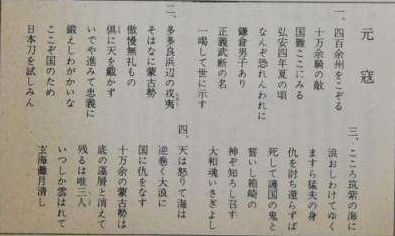 元寇
一、四百余州をこぞる
十万余騎の敵
国難ここにみる
弘安四年夏の頃
なんぞ恐れんわれに
鎌倉男子あり
正義武断の名
一喝して世に示す
二、多多良浜辺の戎夷
そはなに蒙古勢
傲慢無礼もの
俱に天を戴かず
いでや進みて忠義に
鍛えしわがかいな
ここぞ国のため
日本刀を試しみん
三、こころ筑紫の海に
浪おしわけてゆく
ますら猛夫の身
仇を討ち還らずば
死して護国の鬼と
誓いし箱崎の
神ぞ知ろし召す
大和魂いさぎよし
四、天は怒りて海は
逆巻く大浪に
国に仇をなす
十万余の蒙古勢は
底の藻屑と消えて
残るは唯三人
いつしか雲はれて
玄海灘月清し